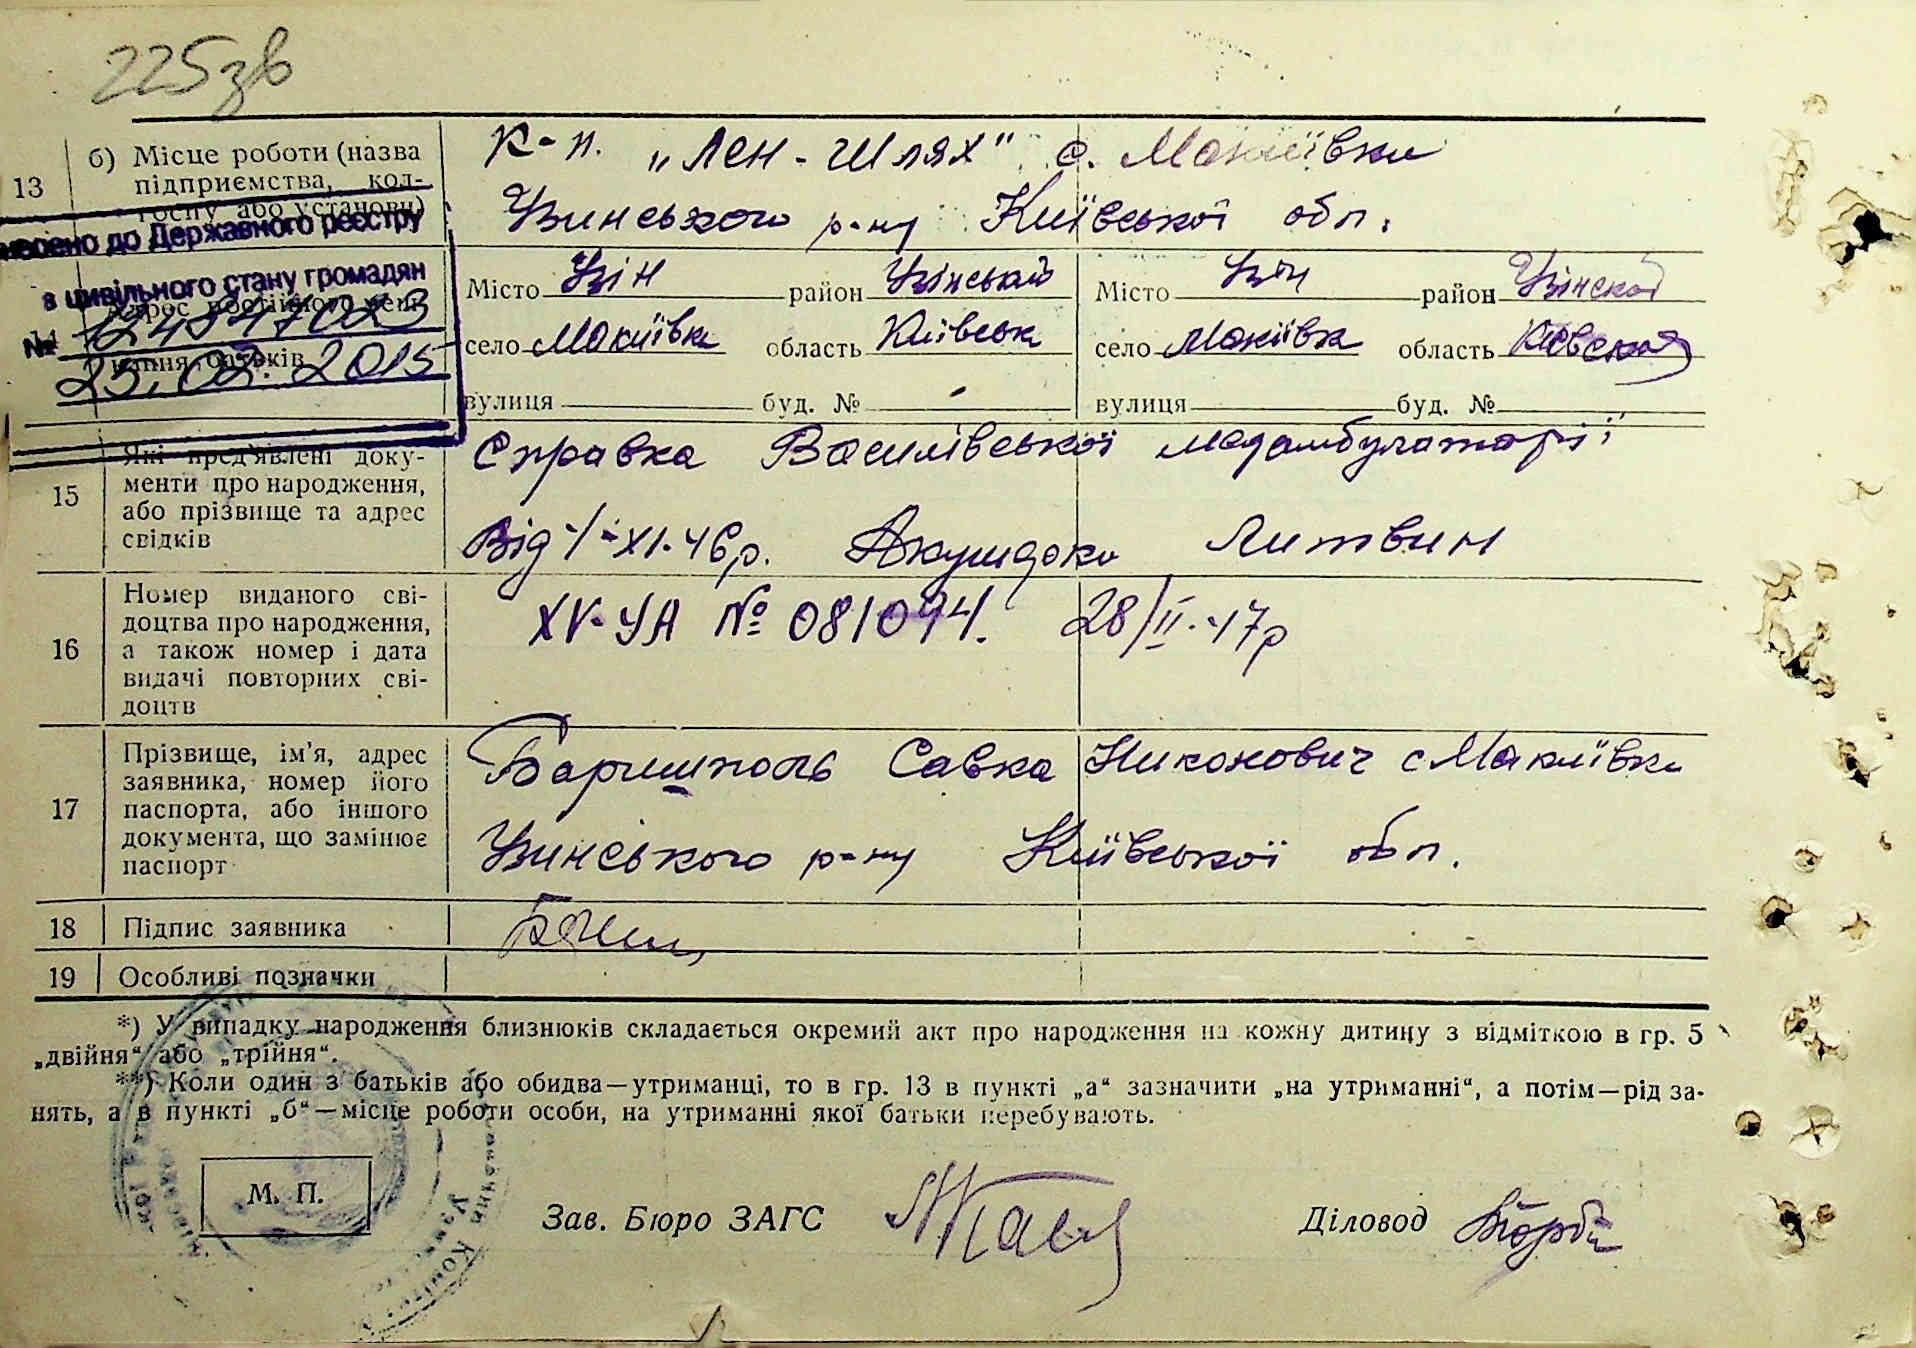 225зв
13 б) Місце роботи (назва підприємства, кол-
госпу або установи)
к-п. „Лен-Шлях" с. Макіївки
Узинського р-ну Київської обл.
внесено до Державного реєстру
в цивільного стану громадян
№ 12487023
25.02.2015
14 Адрес постійного меш-
кання батьків
Місто Узін район Узінський Місто Узін район Узінской
село Макіївка область Київськ село Макіївка область Киевская
вулиця буд. № вулиця буд. №
15 Які пред'явлені доку-
менти про народження,
або прізвище та адрес
свідків
Справка Василівської медамбулаторії
Від 1-XI-46р. Акушерка Литвин
16 Номер виданого сві-
доцтва про народження,
а також номер і дата
видачі повторних сві-
доцтв
XV-УА № 081094. 28/II-47р
17 Прізвище, ім'я, адрес
заявника, номер його
паспорта, або іншого
документа, що замінює
паспорт
Баришполь Савка Никонович с Макіївка
Узинського р-ну Київської обл.
18 Підпис заявника
19 Особливі позначки
*) У випадку народження близнюків складається окремий акт про народження на кожну дитину з відміткою в гр. 5
„двійня“ або „трійня“.
**) Коли один з батьків або обидва—утриманці, то в гр. 13 в пункті „а“ зазначити „на утриманні“, а потім—рід за-
нять, а в пункті „б“—місце роботи особи, на утриманні якої батьки перебувають.
М. П.
Зав. Бюро ЗАГС
Діловод